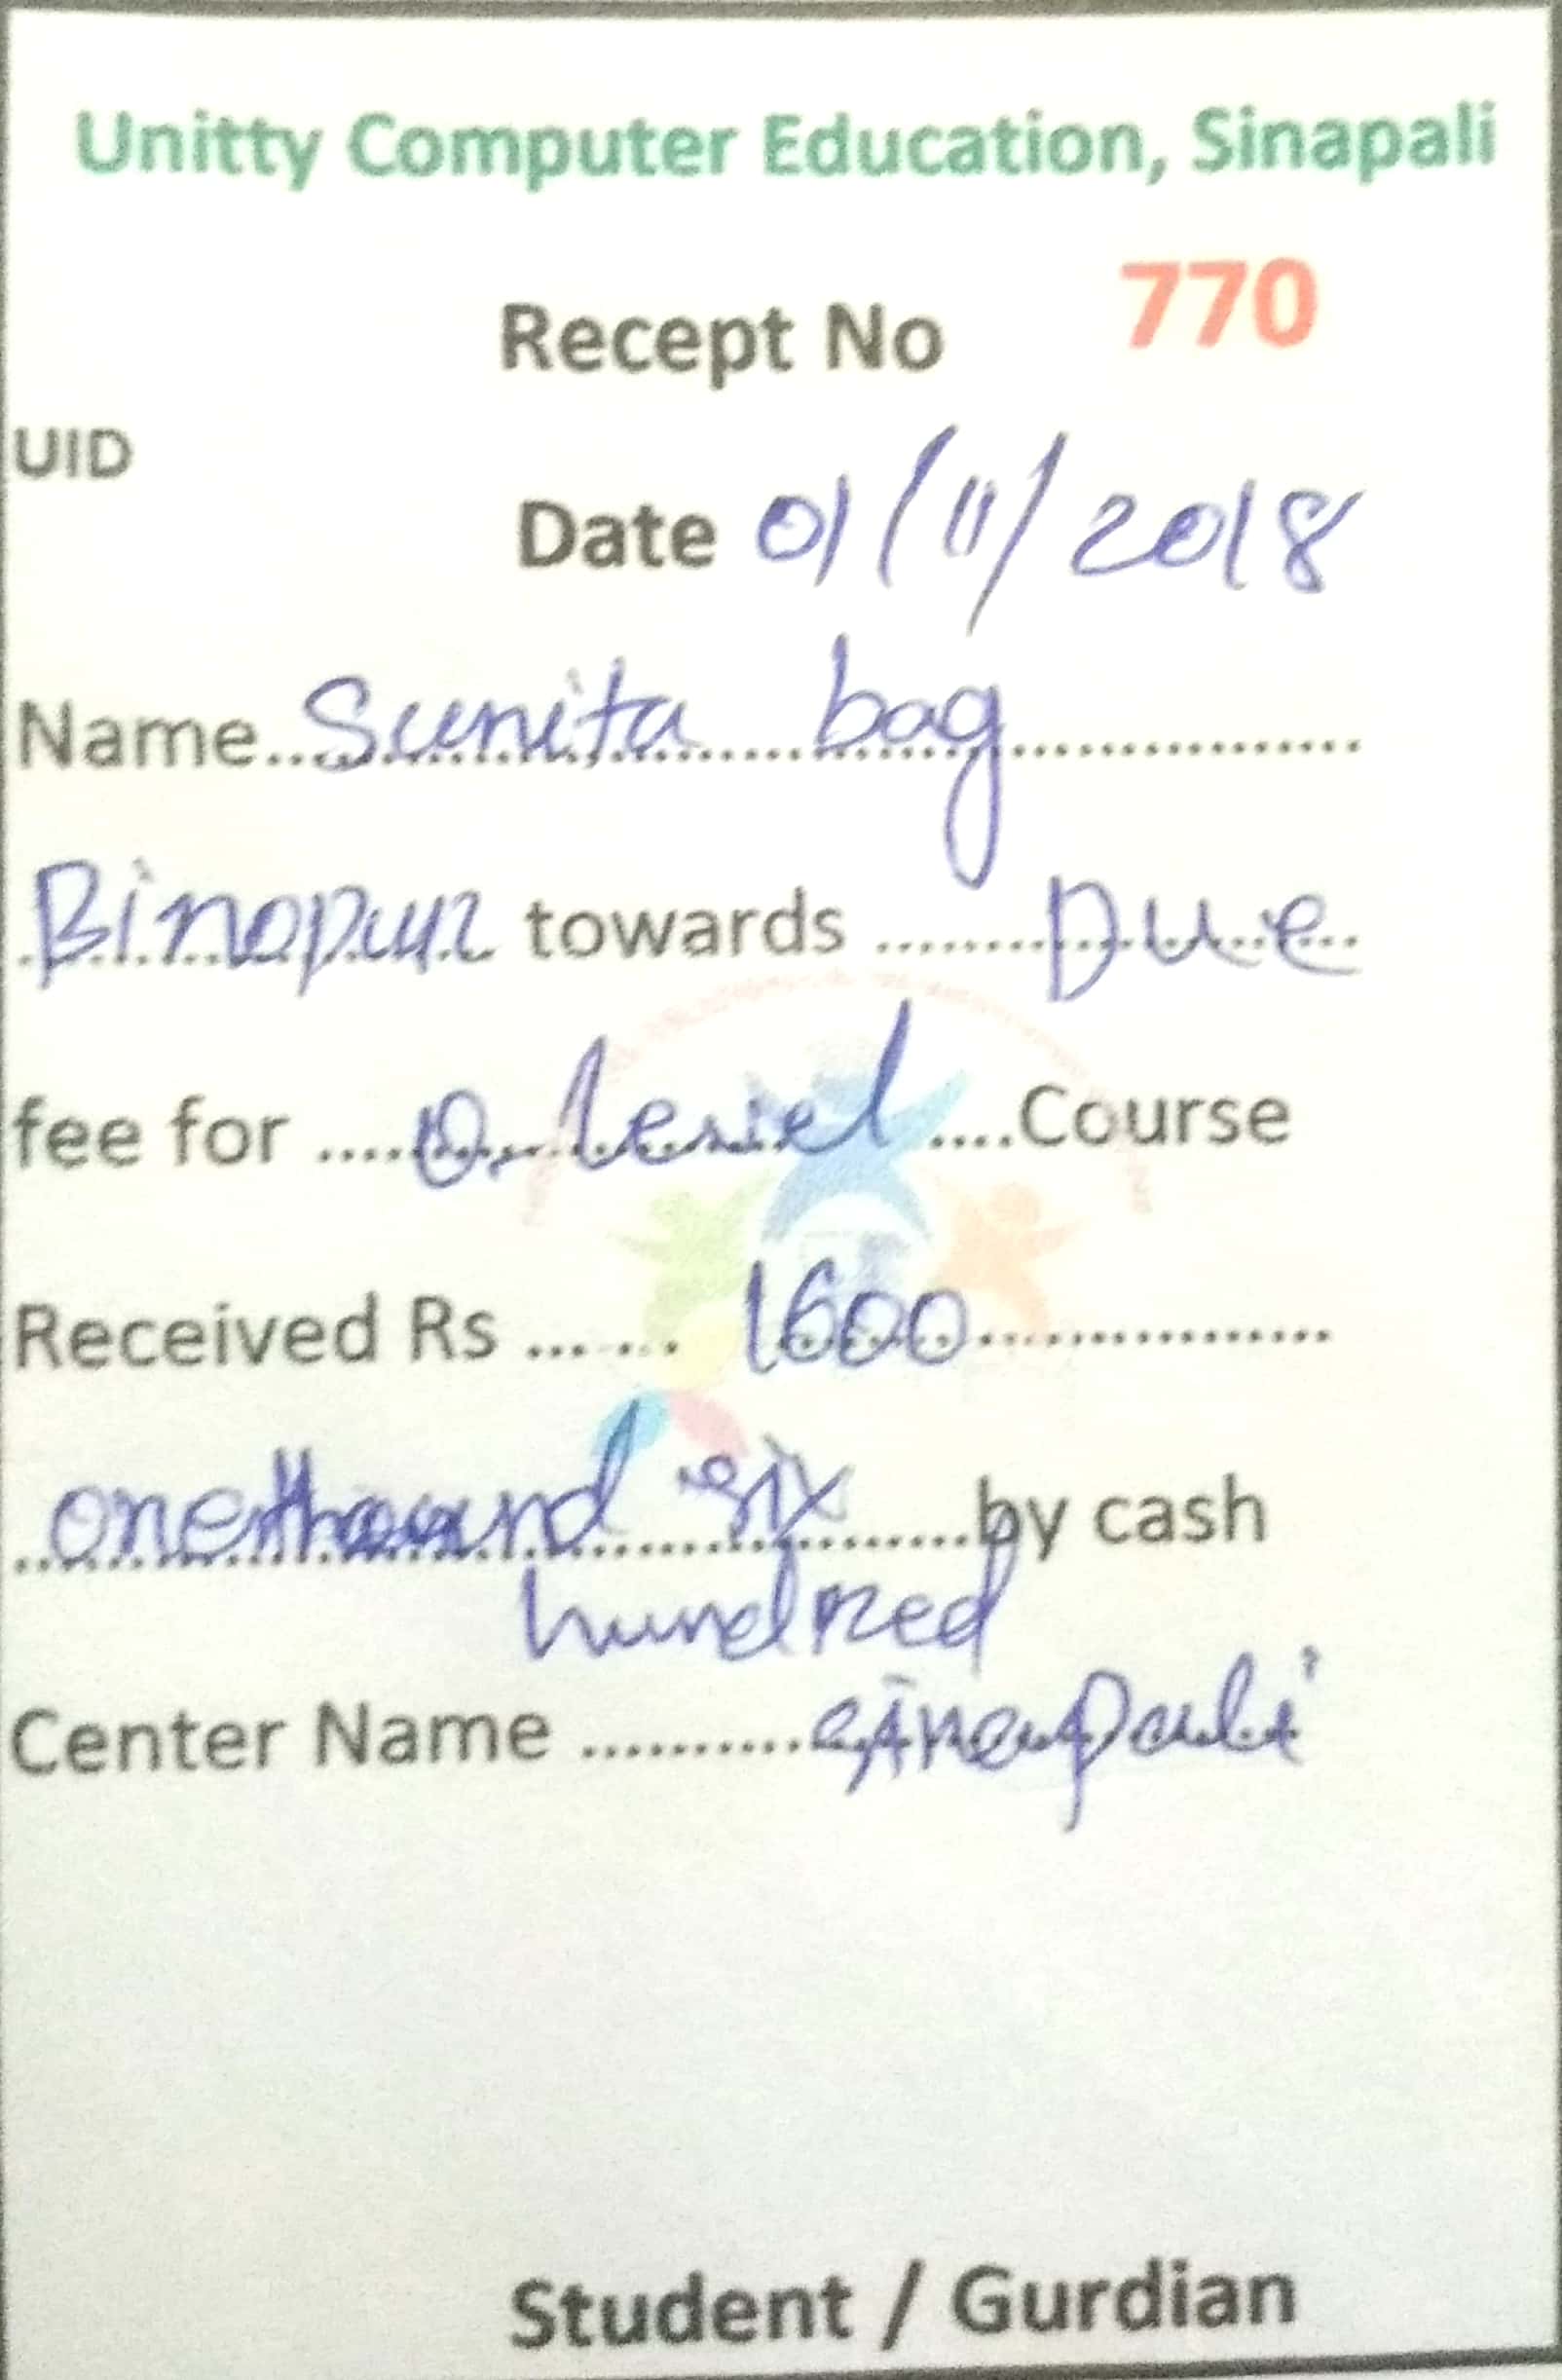 Unitty Computer Education, Sinapali
Recept No 770
UID
Date 01/11/2018
Name...Sunita bag...............
Binapur towards ........Due
fee for ....O. Level....Course
Received Rs ...... 1600...............
onethousand six.......by cash
hundred
Center Name ..........sinapali
Student / Gurdian